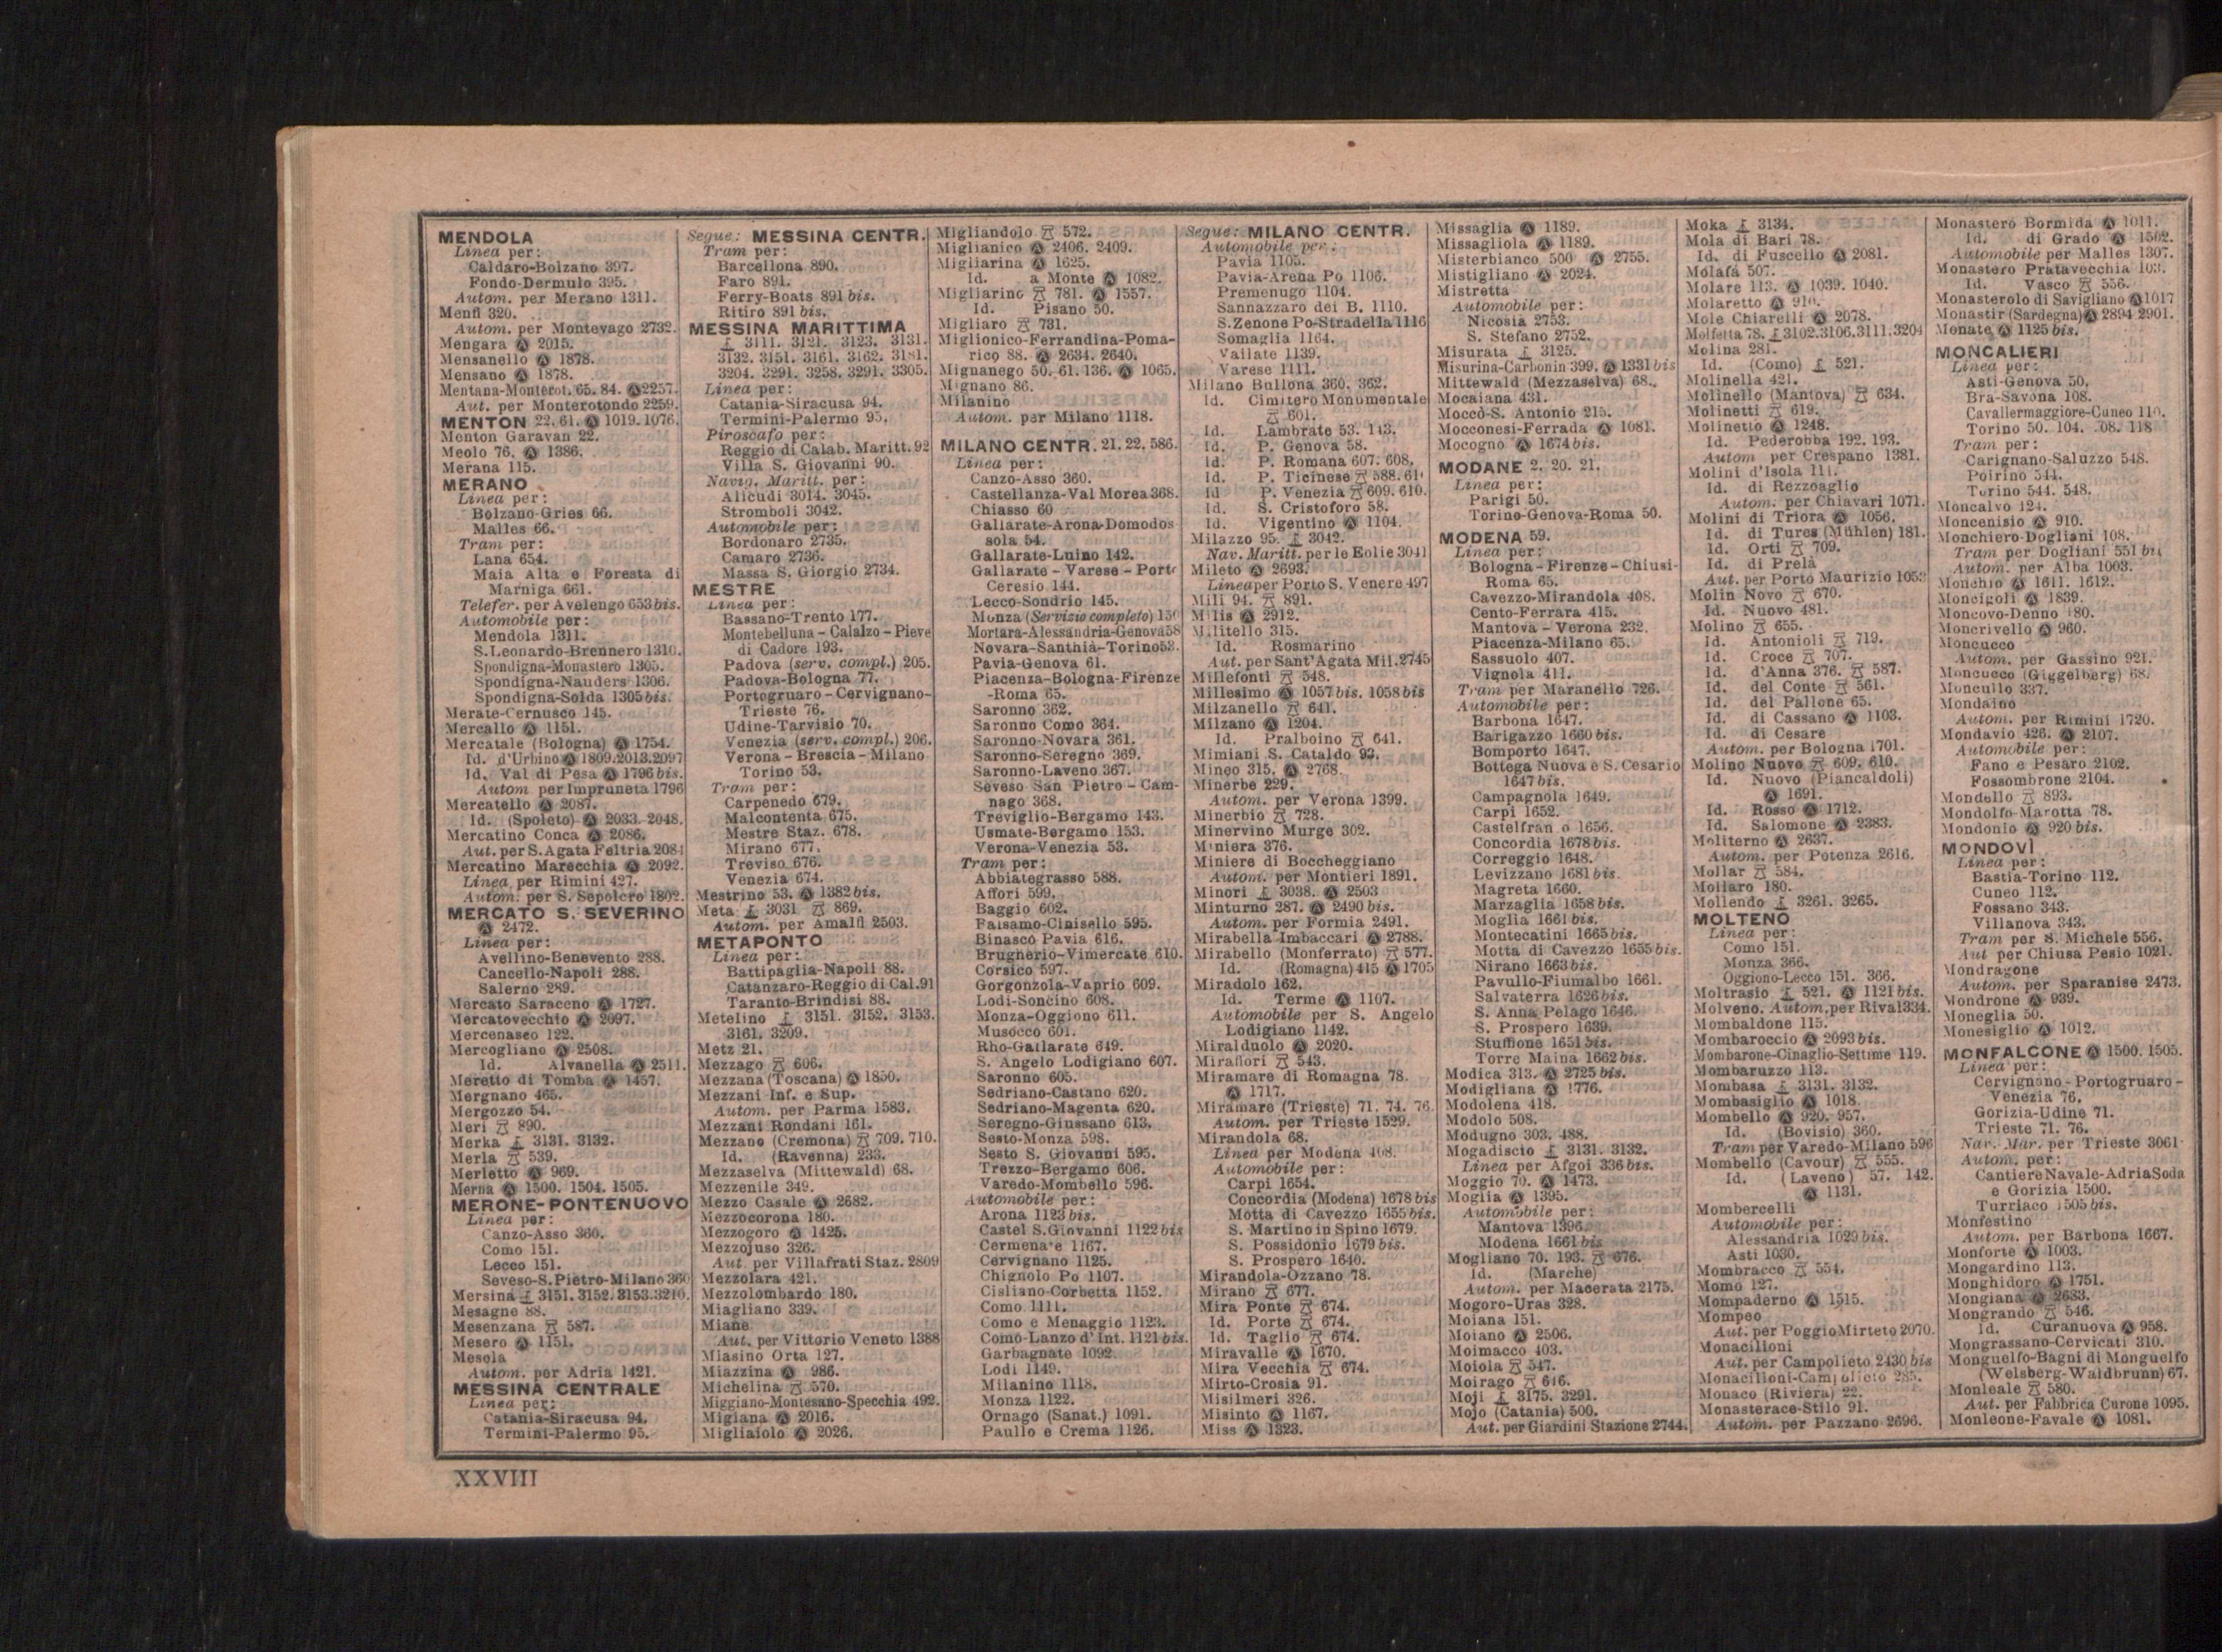 MENDOLA
Linea per:
Caldaro-Bolzano 397.
Fondo-Dermulo 395.
Autom. per Merano 1311.
Menfi 320.
Autom. per Montevago 2732.
Mengara Ⓐ 2015.
Mensanello Ⓐ 1878.
Mensano Ⓐ 1878.
Mentana-Monterot. 65. 84. Ⓐ 2257.
Aut. per Monterotondo 2259.
MENTON 22. 61. Ⓐ 1019. 1076.
Menton Garavan 22.
Meolo 76. Ⓐ 1386.
Merana 115.
MERANO
Linea per:
Bolzano-Gries 66.
Malles 66.
Tram per:
Lana 654.
Maia Alta e Foresta di
Marniga 661.
Telefer. per Avelengo 653 bis.
Automobile per:
Mendola 1311.
S. Leonardo-Brennero 1310.
Spondigna-Monastero 1305.
Spondigna-Nauders 1306.
Spondigna-Solda 1305 bis.
Merate-Cernusco 145.
Mercallo Ⓐ 1151.
Mercatale (Bologna) Ⓐ 1754.
Id. d'Urbino Ⓐ 1809. 2013. 2097
Id. Val di Pesa Ⓐ 1796 bis.
Autom per Impruneta 1796
Mercatello Ⓐ 2087.
Id. (Spoleto) Ⓐ 2033. 2048.
Mercatino Conca Ⓐ 2086.
Aut. per S. Agata Feltria 2084
Mercatino Marecchia Ⓐ 2092.
Linea per Rimini 427.
Autom. per S. Sepolcro 1802.
MERCATO S. SEVERINO
Ⓐ 2472.
Linea per:
Avellino-Benevento 288.
Cancello-Napoli 288.
Salerno 289.
Mercato Saraceno Ⓐ 1727.
Mercatovecchio Ⓐ 2097.
Mercenasco 122.
Mercogliano Ⓐ 2508.
Id. Alvanella Ⓐ 2511.
Meretto di Tomba Ⓐ 1457.
Mergnano 465.
Mergozzo 54.
Meri 890.
Merka 3131. 3132.
Merla 539.
Merletto Ⓐ 969.
Merna Ⓐ 1500. 1504. 1505.
MERONE-PONTENUOVO
Linea per:
Canzo-Asso 360.
Como 151.
Lecco 151.
Seveso-S. Pietro-Milano 360
Mersina 3151. 3152. 3153. 3210.
Mesagne 88.
Mesenzana 587.
Mesero Ⓐ 1151.
Mesola
Autom. per Adria 1421.
MESSINA CENTRALE
Linea per:
Catania-Siracusa 94.
Termini-Palermo 95.
Segue: MESSINA CENTR.
Tram per:
Barcellona 890.
Faro 891.
Ferry-Boats 891 bis.
Ritiro 891 bis.
MESSINA MARITTIMA
3111. 3121. 3123. 3131.
3132. 3151. 3161. 3162. 3181.
3204. 3291. 3258. 3291. 3305.
Linea per:
Catania-Siracusa 94.
Termini-Palermo 95.
Piroscafo per:
Reggio di Calab. Maritt. 92
Villa S. Giovanni 90.
Navig. Maritt. per:
Alicudi 3014. 3045.
Stromboli 3042.
Automobile per:
Bordonaro 2735.
Camaro 2736.
Massa S. Giorgio 2734.
MESTRE
Linea per:
Bassano-Trento 177.
Montebelluna - Calalzo - Pieve
di Cadore 193.
Padova (serv. compl.) 205.
Padova-Bologna 77.
Portogruaro - Cervignano-
Trieste 76.
Udine-Tarvisio 70.
Venezia (serv. compl.) 206.
Verona - Brescia - Milano
Torino 53.
Tram per:
Carpenedo 679.
Malcontenta 675.
Mestre Staz. 678.
Mirano 677.
Treviso 676.
Venezia 674.
Mestrino 53. Ⓐ 1382 bis.
Meta 3031 869.
Autom. per Amalfi 2503.
METAPONTO
Linea per:
Battipaglia-Napoli 88.
Catanzaro-Reggio di Cal. 91
Taranto-Brindisi 88.
Metelino 3151. 3152. 3153.
3161. 3209.
Metz 21.
Mezzago 606.
Mezzana (Toscana) Ⓐ 1850.
Mezzani Inf. e Sup.
Autom. per Parma 1583.
Mezzani Rondani 161.
Mezzano (Cremona) 709. 710.
Id. (Ravenna) 233.
Mezzaselva (Mittewald) 68.
Mezzenile 349.
Mezzo Casale Ⓐ 2682.
Mezzocorona 180.
Mezzogoro Ⓐ 1425.
Mezzojuso 326.
Aut. per Villafrati Staz. 2809
Mezzolara 421.
Mezzolombardo 180.
Miagliano 339.
Miane
Aut. per Vittorio Veneto 1388
Miasino Orta 127.
Miazzina Ⓐ 986.
Michelina 570.
Miggiano-Montesano-Specchia 492.
Migiana Ⓐ 2016.
Migliaiolo Ⓐ 2026.
Migliandolo 572.
Miglianico Ⓐ 2406. 2409.
Migliarina Ⓐ 1625.
Id. a Monte Ⓐ 1082.
Migliarino 781. Ⓐ 1557.
Id. Pisano 50.
Migliaro 731.
Miglionico-Ferrandina-Poma-
rico 88. Ⓐ 2634. 2640.
Mignanego 50. 61. 136. Ⓐ 1065.
Mignano 86.
Milanino
Autom. per Milano 1118.
MILANO CENTR. 21. 22. 586.
Linea per:
Canzo-Asso 360.
Castellanza-Val Morea 368.
Chiasso 60
Gallarate-Arona-Domodos
sola 54.
Gallarate-Luino 142.
Gallarate - Varese - Porto
Ceresio 144.
Lecco-Sondrio 145.
Monza (Servizio completo) 150
Mortara-Alessandria-Genova 58
Novara-Santhià-Torino 53.
Pavia-Genova 61.
Piacenza-Bologna-Firenze
-Roma 65.
Saronno 362.
Saronno Como 364.
Saronno-Novara 361.
Saronno-Seregno 369.
Saronno-Laveno 367.
Seveso San Pietro - Cam-
nago 368.
Treviglio-Bergamo 143.
Usmate-Bergamo 153.
Verona-Venezia 53.
Tram per:
Abbiategrasso 588.
Affori 599.
Baggio 602.
Balsamo-Cinisello 595.
Binasco Pavia 616.
Brugherio-Vimercate 610.
Corsico 597.
Gorgonzola-Vaprio 609.
Lodi-Soncino 608.
Monza-Oggiono 611.
Musocco 601.
Rho-Gallarate 649.
S. Angelo Lodigiano 607.
Saronno 605.
Sedriano-Castano 620.
Sedriano-Magenta 620.
Seregno-Giussano 613.
Sesto-Monza 598.
Sesto S. Giovanni 595.
Trezzo-Bergamo 606.
Varedo-Mombello 596.
Automobile per:
Arona 1123 bis.
Castel S. Giovanni 1122 bis
Cermenate 1167.
Cervignano 1125.
Chignolo Po 1107.
Cisliano-Corbetta 1152.
Como 1111.
Como e Menaggio 1123.
Como-Lanzo d'Int. 1121 bis.
Garbagnate 1092.
Lodi 1149.
Milanino 1118.
Monza 1122.
Ornago (Sanat.) 1091.
Paullo e Crema 1126.
Segue: MILANO CENTR.
Automobile per:
Pavia 1105.
Pavia-Arena Po 1106.
Premenugo 1104.
Sannazzaro dei B. 1110.
S. Zenone Po-Stradella 1116
Somaglia 1164.
Vailate 1139.
Varese 1111.
Milano Bullona 360. 362.
Id. Cimitero Monumentale
601.
Id. Lambrate 53. 143.
Id. P. Genova 58.
Id. P. Romana 607. 608.
Id. P. Ticinese 588.
Id P. Venezia 609. 610.
Id. S. Cristoforo 58.
Id. Vigentino Ⓐ 1104.
Milazzo 95. 3042.
Nav. Maritt. per le Eolie 3041
Mileto Ⓐ 2693.
Linea per Porto S. Venere 497
Mili 94. 891.
Milis Ⓐ 2912.
Militello 315.
Id. Rosmarino
Aut. per Sant'Agata Mil. 2745
Millefonti 548.
Millesimo Ⓐ 1057 bis. 1058 bis
Milzanello 641.
Milzano Ⓐ 1204.
Id. Pralboino 641.
Mimiani S. Cataldo 93.
Mineo 315. Ⓐ 2768.
Minerbe 229.
Autom. per Verona 1399.
Minerbio 728.
Minervino Murge 302.
Miniera 376.
Miniere di Boccheggiano
Autom. per Montieri 1891.
Minori 3038. Ⓐ 2503
Minturno 287. Ⓐ 2490 bis.
Autom. per Formia 2491.
Mirabella Imbaccari Ⓐ 2788.
Mirabello (Monferrato) 577.
Id. (Romagna) 415 Ⓐ 1705
Miradolo 162.
Id. Terme Ⓐ 1107.
Automobile per S. Angelo
Lodigiano 1142.
Miralduolo Ⓐ 2020.
Miraflori 543.
Miramare di Romagna 78.
Ⓐ 1717.
Miramare (Trieste) 71. 74. 76
Autom. per Trieste 1529.
Mirandola 68.
Linea per Modena 408.
Automobile per:
Carpi 1654.
Concordia (Modena) 1678 bis
Motta di Cavezzo 1655 bis.
S. Martino in Spino 1679.
S. Possidonio 1679 bis.
S. Prospero 1640.
Mirandola-Ozzano 78.
Mirano 677.
Mira Ponte 674.
Id. Porte 674.
Id. Taglio 674.
Miravalle Ⓐ 1670.
Mira Vecchia 674.
Mirto-Crosia 91.
Misilmeri 326.
Misinto Ⓐ 1167.
Miss Ⓐ 1323.
Missaglia Ⓐ 1189.
Missagliola Ⓐ 1189.
Misterbianco 500 Ⓐ 2755.
Mistigliano Ⓐ 2024.
Mistretta
Automobile per:
Nicosia 2753.
S. Stefano 2752.
Misurata 3125.
Misurina-Carbonin 399. Ⓐ 1331 bis
Mittewald (Mezzaselva) 68.
Mocaiana 431.
Moccò-S. Antonio 215.
Mocconesi-Ferrada Ⓐ 1081.
Mocogno Ⓐ 1674 bis.
MODANE 2. 20. 21.
Linea per:
Parigi 50.
Torino-Genova-Roma 50.
MODENA 59.
Linea per:
Bologna - Firenze - Chiusi-
Roma 65.
Cavezzo-Mirandola 408.
Cento-Ferrara 415.
Mantova - Verona 232.
Piacenza-Milano 65.
Sassuolo 407.
Vignola 411.
Tram per Maranello 726.
Automobile per:
Barbona 1647.
Barigazzo 1660 bis.
Bomporto 1647.
Bottega Nuova e S. Cesario
1647 bis.
Campagnola 1649.
Carpi 1652.
Castelfran o 1656.
Concordia 1678 bis.
Correggio 1648.
Levizzano 1681 bis.
Magreta 1660.
Marzaglia 1658 bis.
Moglia 1661 bis.
Montecatini 1665 bis.
Motta di Cavezzo 1655 bis.
Nirano 1663 bis.
Pavullo-Fiumalbo 1661.
Salvaterra 1626 bis.
S. Anna Pelago 1646.
S. Prospero 1639.
Stuffione 1651 bis.
Torre Maina 1662 bis.
Modica 313. Ⓐ 2725 bis.
Modigliana Ⓐ 1776.
Modolena 418.
Modolo 508.
Modugno 303. 488.
Mogadiscio 3131. 3132.
Linea per Afgoi 336 bis.
Moggio 70. Ⓐ 1473.
Moglia Ⓐ 1395.
Automobile per:
Mantova 1396.
Modena 1661 bis
Mogliano 70. 193. 676.
Id. (Marche)
Autom. per Macerata 2175.
Mogoro-Uras 328.
Moiana 151.
Moiano Ⓐ 2506.
Moimacco 403.
Moiola 547.
Moirago 616.
Moji 3175. 3291.
Mojo (Catania) 500.
Aut. per Giardini Stazione 2744.
Moka 3134.
Mola di Bari 78.
Id. di Fuscello Ⓐ 2081.
Molafà 507.
Molare 113. Ⓐ 1039. 1040.
Molaretto Ⓐ 910.
Mole Chiarelli Ⓐ 2078.
Molfetta 78. 3102. 3106. 3111. 3204
Molina 281.
Id. (Como) 521.
Molinella 421.
Molinello (Mantova) 634.
Molinetti 619.
Molinetto Ⓐ 1248.
Id. Pederobba 192. 193.
Autom per Crespano 1381.
Molini d'Isola 111.
Id. di Rezzoaglio
Autom. per Chiavari 1071.
Molini di Triora Ⓐ 1056.
Id. di Tures (Mühlen) 181.
Id. Orti 709.
Id. di Prelà
Aut. per Porto Maurizio 1053
Molin Novo 670.
Id. Nuovo 481.
Molino 655.
Id. Antonioli 719.
Id. Croce 707.
Id. d'Anna 376. 587.
Id. del Conte 561.
Id. del Pallone 65.
Id. di Cassano Ⓐ 1103.
Id. di Cesare
Autom. per Bologna 1701.
Molino Nuovo 609. 610.
Id. Nuovo (Piancaldoli)
Ⓐ 1691.
Id. Rosso Ⓐ 1712.
Id. Salomone Ⓐ 2383.
Moliterno Ⓐ 2637.
Autom. per Potenza 2616.
Mollar 584.
Mollaro 180.
Mollendo 3261. 3265.
MOLTENO
Linea per:
Como 151.
Monza 366.
Oggiono-Lecco 151. 366.
Moltrasio 521. Ⓐ 1121 bis.
Molveno. Autom. per Riva 1334.
Mombaldone 115.
Mombaroccio Ⓐ 2093 bis.
Mombarone-Cinaglio-Settime 119.
Mombaruzzo 113.
Mombasa 3131. 3132.
Mombasiglio Ⓐ 1018.
Mombello Ⓐ 920. 957.
Id. (Bovisio) 360.
Tram per Varedo-Milano 596
Mombello (Cavour) 555.
Id. (Laveno) 57. 142.
Ⓐ 1131.
Mombercelli
Automobile per:
Alessandria 1029 bis.
Asti 1030.
Mombracco 554.
Momo 127.
Mompaderno Ⓐ 1515.
Mompeo
Aut. per Poggio Mirteto 2070.
Monacilioni
Aut. per Campolieto 2430 bis
Monacilioni-Campolieto 285.
Monaco (Riviera) 22.
Monasterace-Stilo 91.
Autom. per Pazzano 2696.
Monastero Bormida Ⓐ 1011.
Id. di Grado Ⓐ 1502.
Automobile per Malles 1307.
Monastero Pratavecchia 103.
Id. Vasco 556.
Monasterolo di Savigliano Ⓐ 1017
Monastir (Sardegna) Ⓐ 2894 2901.
Monate Ⓐ 1125 bis.
MONCALIERI
Linea per:
Asti-Genova 50.
Bra-Savona 108.
Cavallermaggiore-Cuneo 110.
Torino 50. 104. 08. 118
Tram per:
Carignano-Saluzzo 548.
Poirino 544.
Torino 544. 548.
Moncalvo 124.
Moncenisio Ⓐ 910.
Monchiero-Dogliani 108.
Tram per Dogliani 551 bis
Autom. per Alba 1003.
Monchio Ⓐ 1611. 1612.
Moncigoli Ⓐ 1839.
Moncovo-Denno 180.
Moncrivello Ⓐ 960.
Moncucco
Autom. per Gassino 921.
Moncucco (Giggelberg) 68.
Moncullo 337.
Mondaino
Autom. per Rimini 1720.
Mondavio 426. Ⓐ 2107.
Automobile per:
Fano e Pesaro 2102.
Fossombrone 2104.
Mondello 893.
Mondolfo-Marotta 78.
Mondonio Ⓐ 920 bis.
MONDOVÌ
Linea per:
Bastia-Torino 112.
Cuneo 112.
Fossano 343.
Villanova 343.
Tram per S. Michele 556.
Aut per Chiusa Pesio 1021.
Mondragone
Autom. per Sparanise 2473.
Mondrone Ⓐ 939.
Moneglia 50.
Monesiglio Ⓐ 1012.
MONFALCONE Ⓐ 1500. 1505.
Linea per:
Cervignano - Portogruaro -
Venezia 76.
Gorizia-Udine 71.
Trieste 71. 76.
Nav. Mar. per Trieste 3061
Autom. per:
Cantiere Navale-Adria Soda
e Gorizia 1500.
Turriaco 1505 bis.
Monfestino
Autom. per Barbona 1667.
Monforte Ⓐ 1003.
Mongardino 113.
Monghidoro Ⓐ 1751.
Mongiana Ⓐ 2683.
Mongrando 546.
Id. Curanuova Ⓐ 958.
Mongrassano-Cervicati 310.
Monguelfo-Bagni di Monguelfo
(Welsberg-Waldbrunn) 67.
Monleale 580.
Aut. per Fabbrica Curone 1095.
Monleone-Favale Ⓐ 1081.
XXVIII